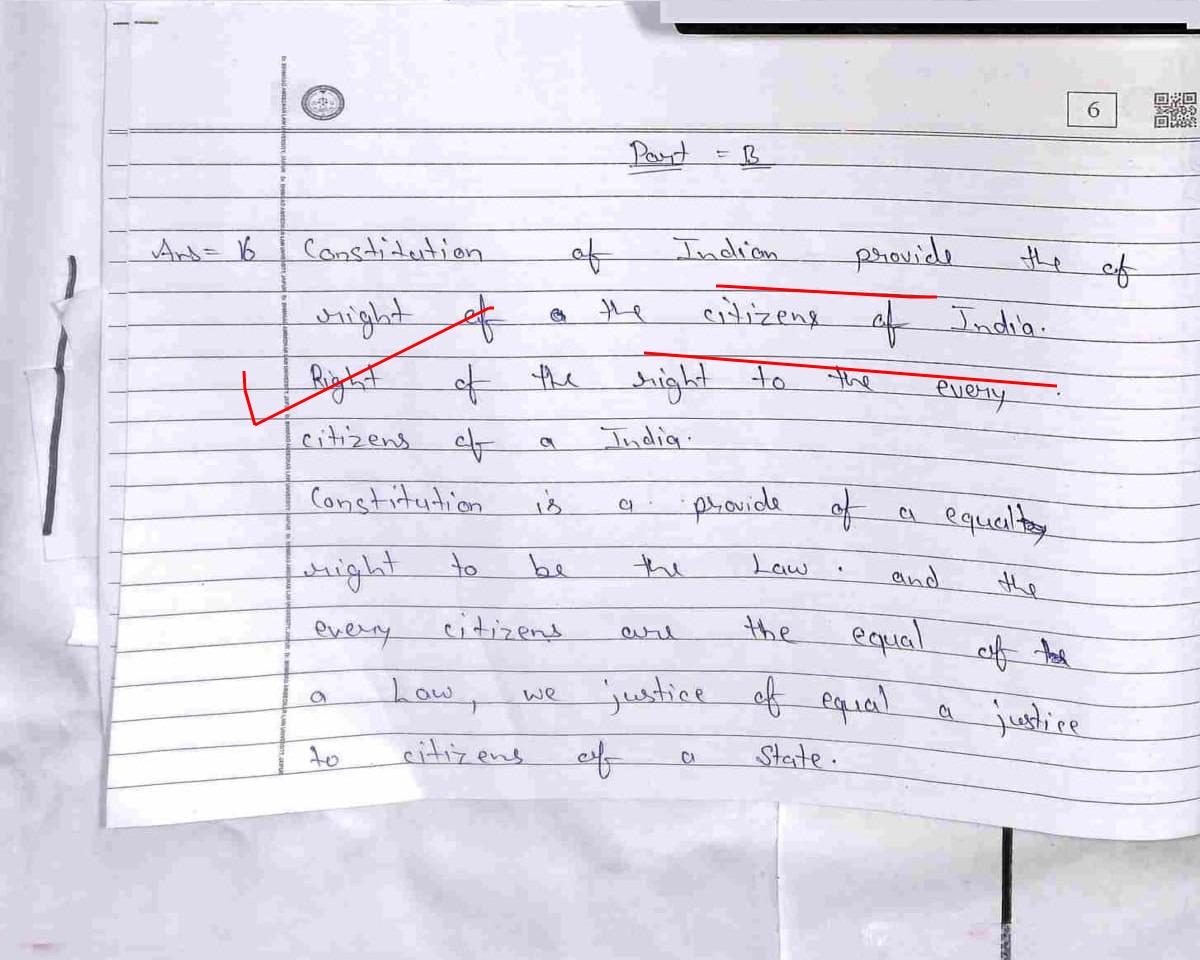 6
Part = B
Ans = 16 Constitution of Indian provide the of
right of a the citizens of India.
Right of the right to the every
citizens of a India.
Constitution is a provide of a equal
right to be the Law. and the
every citizens are the equal of
a Law, we justice of equal a justice
to citizens of a State.